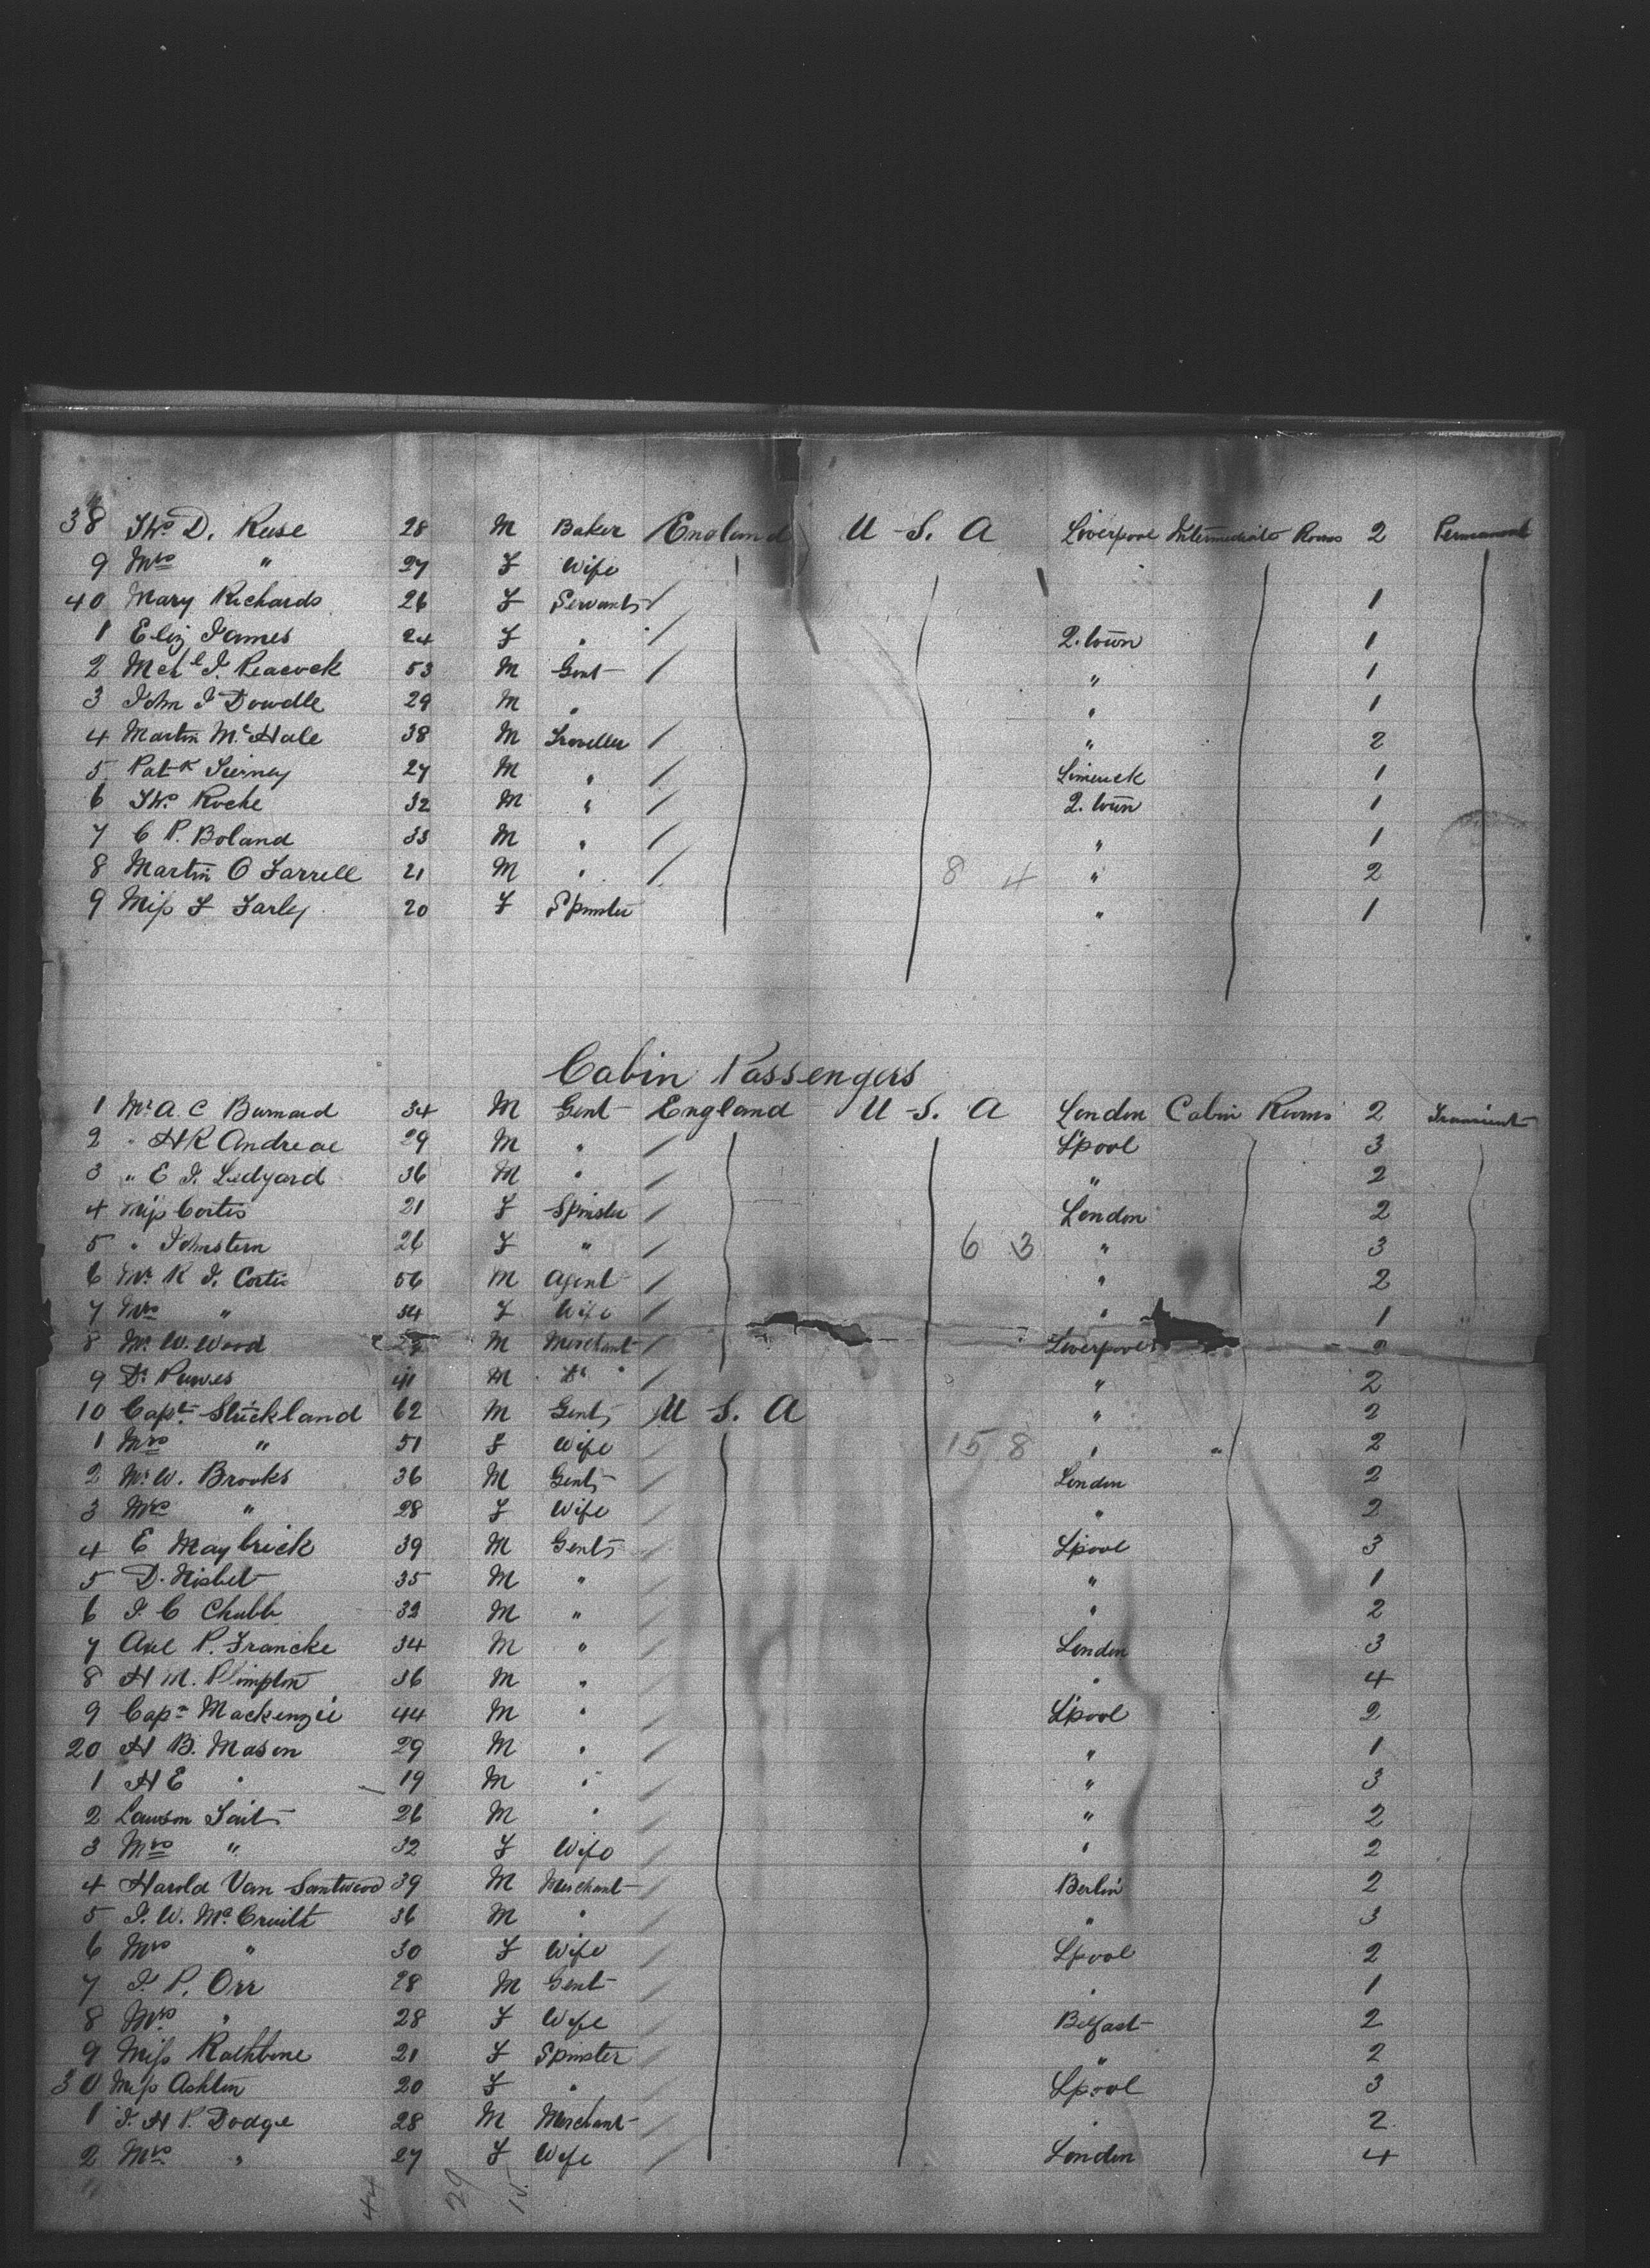 38 Thos D. Ruse 28 M Baker England U-S. A Liverpool Intermediate Rooms 2 Permanent
9 Mrs " 27 F Wife
40 Mary Richards 26 F Servants 1
1 Eliz James 24 F " 2. town 1
2 Mchl J. Peacock 53 M Gent " 1
3 John J Dowdle 29 M " " 1
4 Martin McHale 38 M Traveller " 2
5 Patk Tierney 27 M " Limerick 1
6 Thos Roche 32 M " 2. town 1
7 C P. Boland 33 M " " 1
8 Martin O Farrell 21 M " 8 4 " 2
9 Miss F Farley 20 F Spinster " 1
Cabin Passengers
1 Mr A. C Barnard 34 M Gent England U-S. A London Cabin Rooms 2 Transient
2 " H R Andreae 29 M " L'pool 3
3 " E J. Ledyard 36 M " " 2
4 Miss Cortis 21 F Spinster London 2
5 " Johnstern 26 F " 6 3 " 3
6 Mr R J. Cortis 56 M Agent " 2
7 Mrs " 54 F Wife " 1
8 Mr W. Wood M Merchant Liverpool
9 Dr 41 M Dr " 2
10 Capt Strickland 62 M Gent U S. A " 2
1 Mrs " 51 F Wife 15 8 " " 2
2 Mr W. Brooks 36 M Gent London 2
3 Mrs " 28 F Wife " 2
4 E Maybrick 39 M Gent L'pool 3
5 D. Nisbet 35 M " " 1
6 J. C Chubb 32 M " " 2
7 Axel P. Francke 34 M " London 3
8 H M. Plimpton 36 M " " 4
9 Capn Mackenzie 44 M " L'pool 2
20 H B. Mason 29 M " " 1
1 H E " 19 M " " 3
2 Lawson Tait 26 M " " 2
3 Mrs " 32 F Wife " 2
4 Harold Van Santwood 39 M Merchant Berlin 2
5 J. W. 36 M " " 3
6 Mrs " 30 F Wife L'pool 2
7 J. P. Orr 28 M Gent " 1
8 Mrs " 28 F Wife Belfast 2
9 Miss Rathbone 21 F Spinster " 2
30 Miss Ashton 20 F " L'pool 3
1 J. H P. Dodge 28 M Merchant " 2
2 Mrs " 27 F Wife London 4
44 29 15